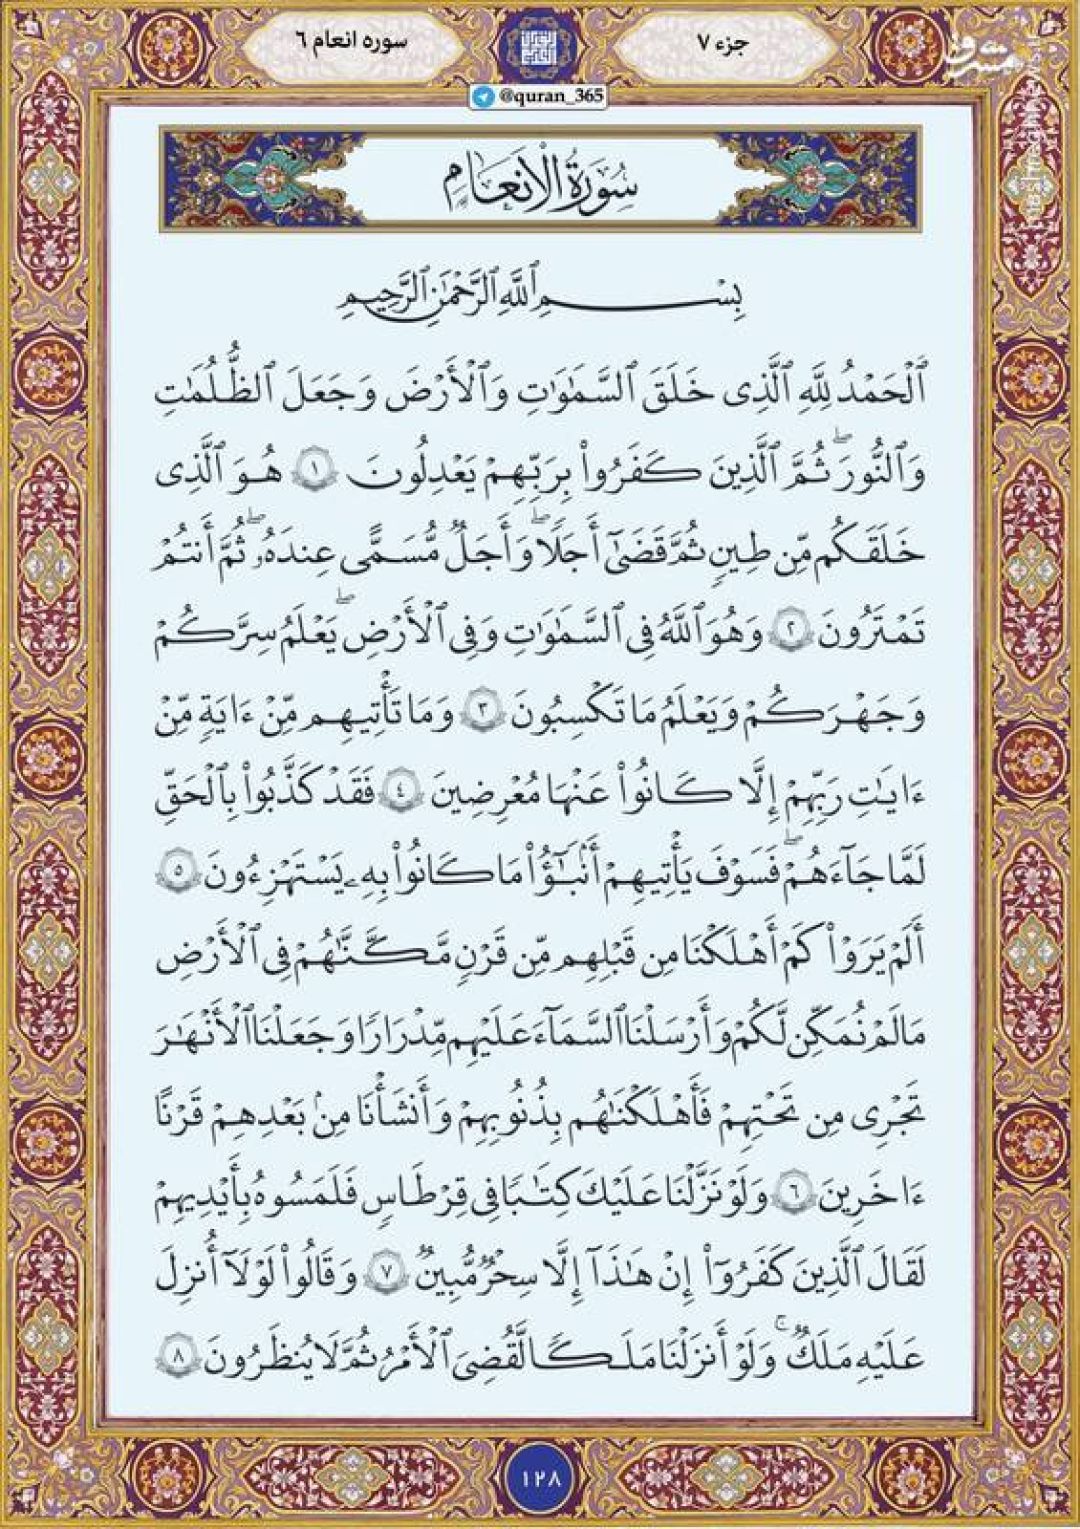 جزء ٧
سوره انعام ٦
مشرق
@quran_365
سُورَةُ الْأَنْعَامِ
بِسْمِ ٱللَّهِ ٱلرَّحْمَٰنِ ٱلرَّحِيمِ
ٱلْحَمْدُ لِلَّهِ ٱلَّذِى خَلَقَ ٱلسَّمَٰوَٰتِ وَٱلْأَرْضَ وَجَعَلَ ٱلظُّلُمَٰتِ
وَٱلنُّورَ ۖ ثُمَّ ٱلَّذِينَ كَفَرُوا۟ بِرَبِّهِمْ يَعْدِلُونَ ١ هُوَ ٱلَّذِى
خَلَقَكُم مِّن طِينٍ ثُمَّ قَضَىٰٓ أَجَلًا ۖ وَأَجَلٌ مُّسَمًّى عِندَهُۥ ۖ ثُمَّ أَنتُمْ
تَمْتَرُونَ ٢ وَهُوَ ٱللَّهُ فِى ٱلسَّمَٰوَٰتِ وَفِى ٱلْأَرْضِ ۖ يَعْلَمُ سِرَّكُمْ
وَجَهْرَكُمْ وَيَعْلَمُ مَا تَكْسِبُونَ ٣ وَمَا تَأْتِيهِم مِّنْ ءَايَةٍ مِّنْ
ءَايَٰتِ رَبِّهِمْ إِلَّا كَانُوا۟ عَنْهَا مُعْرِضِينَ ٤ فَقَدْ كَذَّبُوا۟ بِٱلْحَقِّ
لَمَّا جَآءَهُمْ ۖ فَسَوْفَ يَأْتِيهِمْ أَنۢبَٰٓؤُا۟ مَا كَانُوا۟ بِهِۦ يَسْتَهْزِءُونَ ٥
أَلَمْ يَرَوْا۟ كَمْ أَهْلَكْنَا مِن قَبْلِهِم مِّن قَرْنٍ مَّكَّنَّٰهُمْ فِى ٱلْأَرْضِ
مَا لَمْ نُمَكِّن لَّكُمْ وَأَرْسَلْنَا ٱلسَّمَآءَ عَلَيْهِم مِّدْرَارًا وَجَعَلْنَا ٱلْأَنْهَٰرَ
تَجْرِى مِن تَحْتِهِمْ فَأَهْلَكْنَٰهُم بِذُنُوبِهِمْ وَأَنشَأْنَا مِنۢ بَعْدِهِمْ قَرْنًا
ءَاخَرِينَ ٦ وَلَوْ نَزَّلْنَا عَلَيْكَ كِتَٰبًا فِى قِرْطَاسٍ فَلَمَسُوهُ بِأَيْدِيهِمْ
لَقَالَ ٱلَّذِينَ كَفَرُوٓا۟ إِنْ هَٰذَآ إِلَّا سِحْرٌ مُّبِينٌ ٧ وَقَالُوا۟ لَوْلَآ أُنزِلَ
عَلَيْهِ مَلَكٌ ۖ وَلَوْ أَنزَلْنَا مَلَكًا لَّقُضِىَ ٱلْأَمْرُ ثُمَّ لَا يُنظَرُونَ ٨
١٢٨